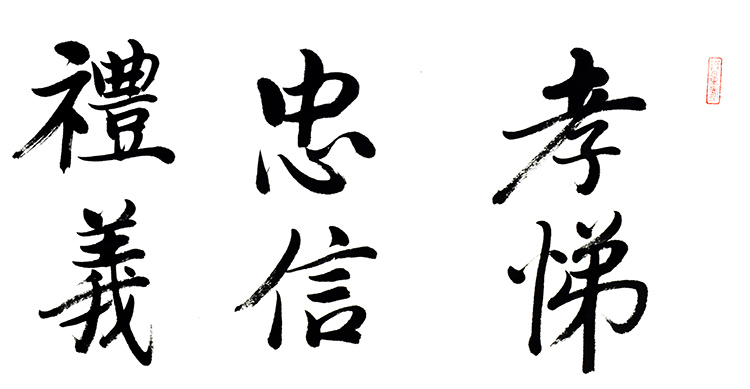 孝悌
忠信
禮義